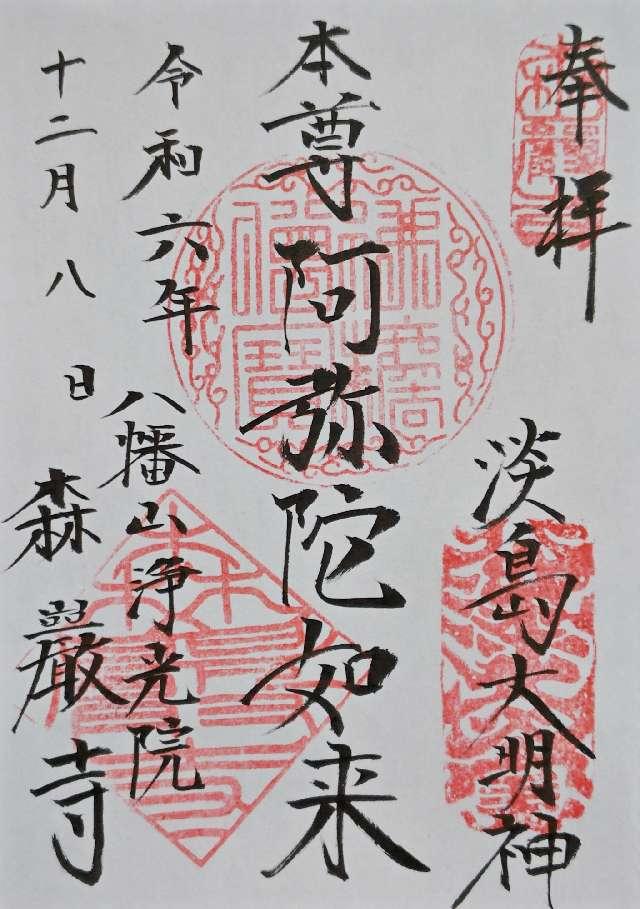 奉拝
淡島大明神
本尊阿弥陀如来
令和六年
八幡山浄光院
十二月八日
森巖寺
佛法僧寶